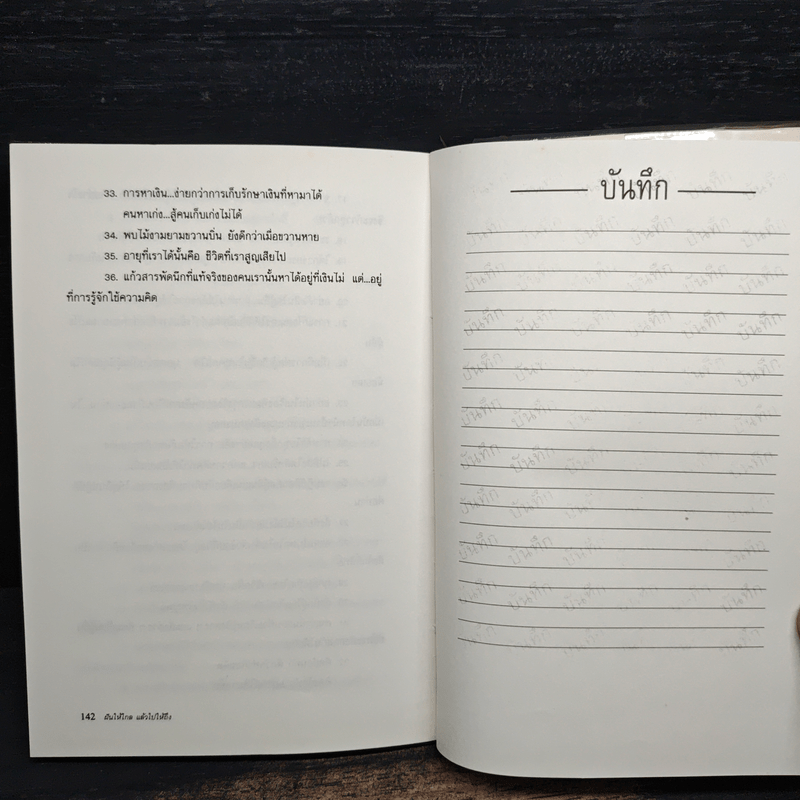 33. การหาเงิน...ง่ายกว่าการเก็บรักษาเงินที่หามาได้
คนหาเก่ง...สู้คนเก็บเก่งไม่ได้
34. พบไม้งามยามขวานบิ่น ยังดีกว่าเมื่อขวานหาย
35. อายุที่เราได้นั้นคือ ชีวิตที่เราสูญเสียไป
36. แก้วสารพัดนึกที่แท้จริงของคนเรานั้นหาได้อยู่ที่เงินไม่ แต่...อยู่
ที่การรู้จักใช้ความคิด
142 ฝันให้ไกล แล้วไปให้ถึง
บันทึก